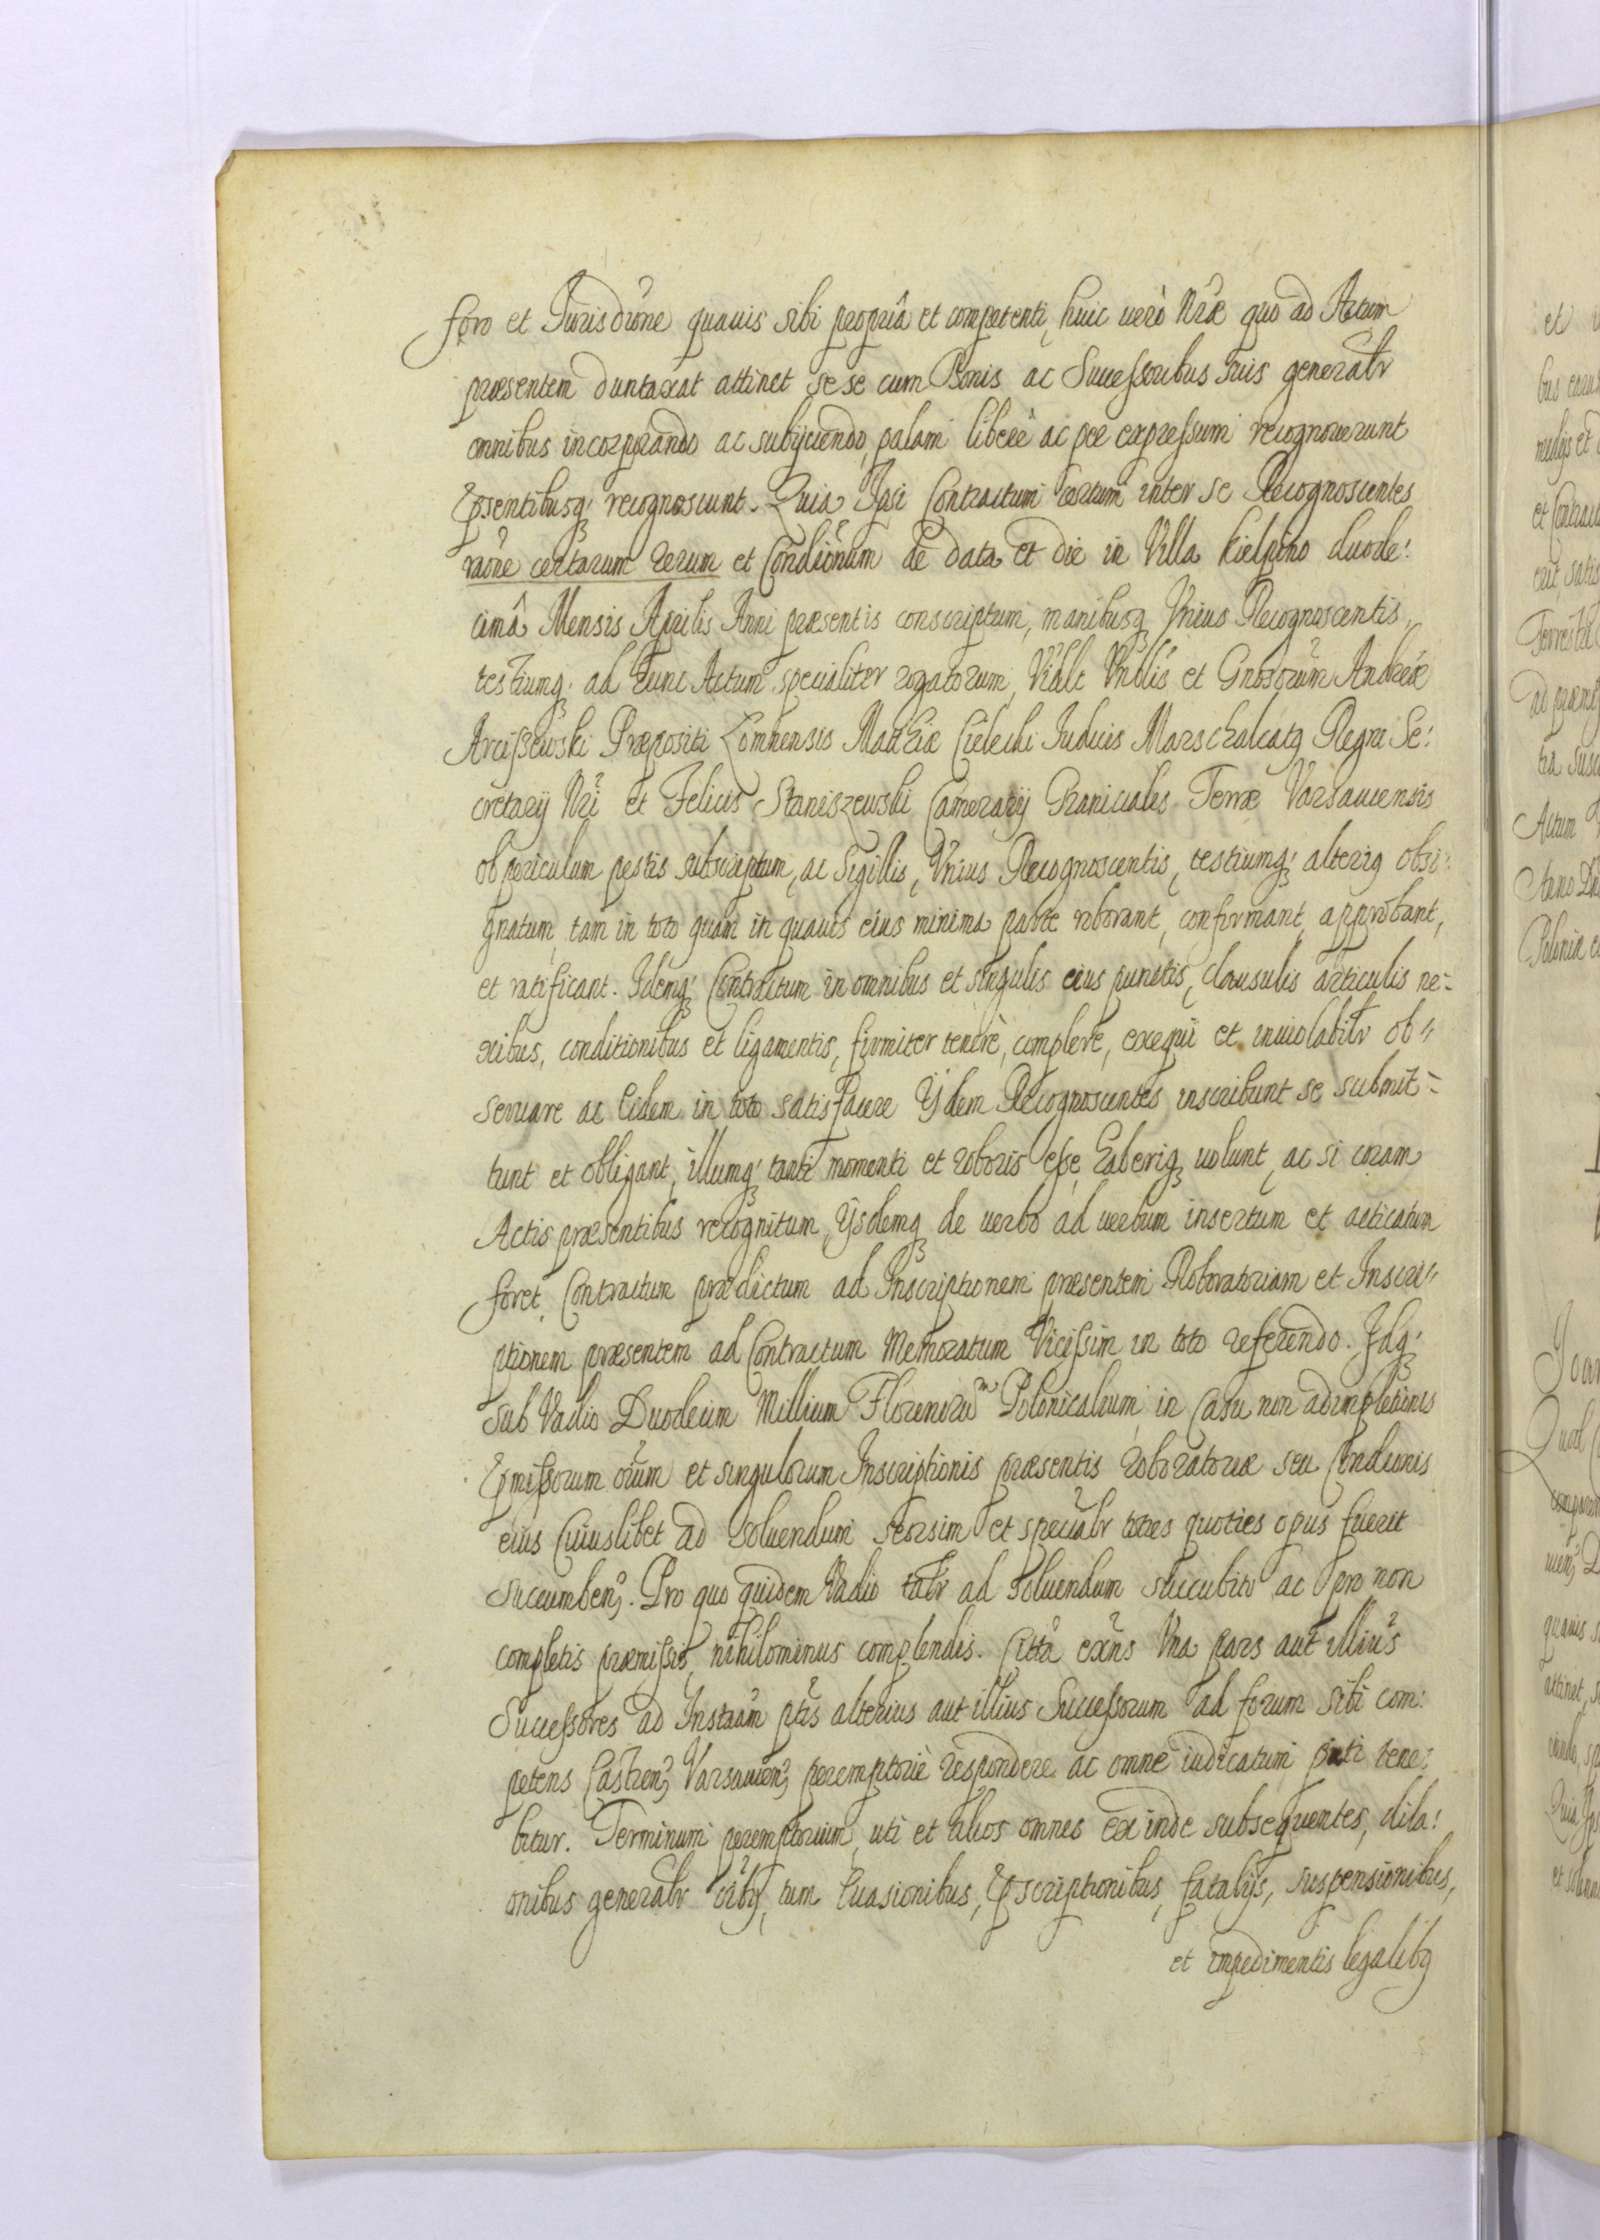 foro et Jurisdõne quauis sibi propriâ et competenti, huic verò Nr̃æ quo ad Actum
præsentem duntaxat attinet se se cum Bonis ac Successoribus suis generalr̃
omnibus incorporando ac subijciendo, palam liberè ac per expressum recognouerunt
p̃sentibusq; recognoscunt. Quia Ipsi Contractum certum inter se Recognoscentes
raõne certarum rerum et Condiõnum de data et die in Villa Kiełpino duode:
cimâ Mensis Aprilis Anni præsentis conscriptum, manibusq; Vnius Recognoscentis,
testiumq; ad hunc Actum specialiter rogatorum, Vr̃blt Vn̈blis et Gn̈osorũm Andreæ
Arciszewski Præpositi Łomnensis Mathiæ Cielecki Judicis Marschalcatq; Regni Se:
cretarij Nr̃i et Felicis Staniszewski Camerarij Granicialis Terræ Varsauiensis
ob periculum pestis subscriptum, ac Sigillis, Vnius Recognoscentis, testiumq; alteriq; obsi:
gnatum, tam in toto quàm in quauis eius minima parte roborant, confirmant, approbant,
et ratificant. Idemq; Contractum in omnibus et singulis eius punctis, clausulis articulis ne=
xibus, conditionibus et ligamentis, firmiter tenere, complere, exequi et inuiolabilr̃ ob=
seruare ac Eidem in toto satisfacere Ijdem Recognoscentes inscribunt se submit=
tunt et obligant, illumq; tanti momenti et roboris esse, haberiq; uolunt, ac si coram
Actis præsentibus recognitum, Ijsdemq; de verbo ad verbum insertum et acticatum
foret. Contractum prædictum ad Inscriptionem præsentem Roboratoriam et Inscri=
ptionem præsentem ad Contractum Memoratum Vicissim in toto referendo. Idq;
sub Vadio Duodecim Millium Florenorũm Polonicalium, in Casu non adimpletionis
p̃missorum oĩum et singulorum Inscriptionis præsentis roboratoriæ seu Condionis
eius Cuiuslibet ad soluendum seorsim et specialr̃ toties quoties opus fuerit
succumbeñ. Pro quo quidem Vadio talr̃ ad soluendum succubito ac pro non
completis præmissis, nihilominus complendis. Citta exñs Vna Pars aut illius
Successores ad Instañm ptis alterius aut illius Successorum ad forum sibi com:
petens Castreñ Varsauieñ peremptoriè respondere ac omne iudicatum pati tene:
bitur. Terminum peremptorium, uti et alios omnes ex inde subsequentes, dila:
onibus generalr̃ oĩbq, tum Euasionibus, p̃scriptionibus, fatalijs, suspensionibus,
et impedimentis legalibq